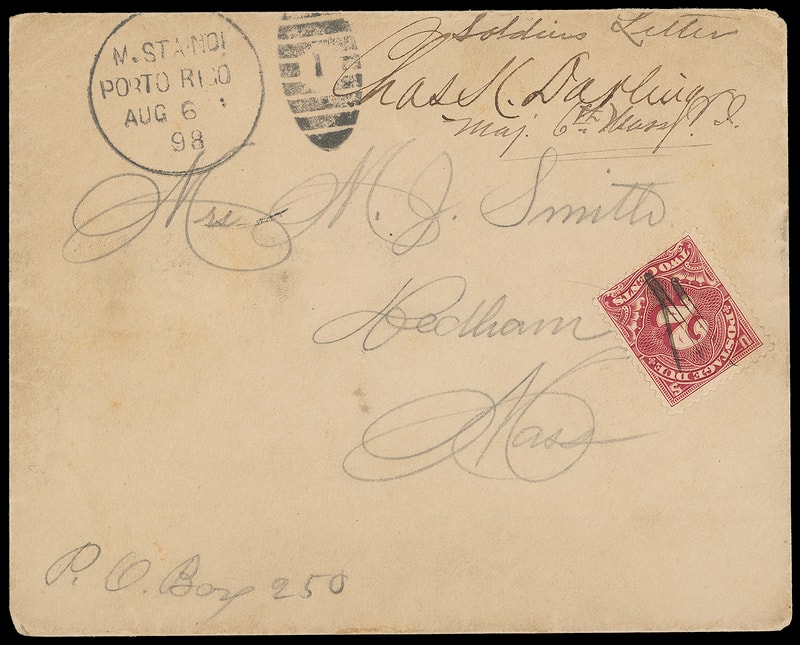 M. STA. NO 1
PORTO RICO
AUG 6
98
1
Soldiers Letter
Chas K. Darling
Maj. 6th Mass. V. I.
Mrs M. J. Smith
Dedham
Mass
P. O. Box 250
TWO CENTS
2
POSTAGE DUE
U S